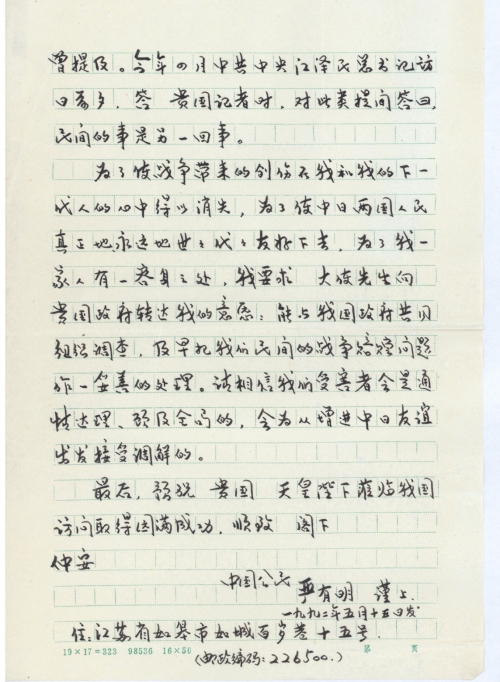 曾提及。今年四月中共中央江泽民总书记访
日前夕，答 贵国记者时，对此类提问答曰，
民间的事是另一回事。
为了使战争带来的创伤在我和我的下一
代人的心中得以消失，为了使中日两国人民
真正地永远地世世代代友好下去，为了我一
家人有一容身之处，我要求 大使先生向
贵国政府转达我的意愿：能与我国政府共同
组织调查，及早把我们民间的战争赔偿问题
作一妥善的处理。请相信我们受害者会是通
情达理、顾及全局的，会为从增进中日友谊
出发接受调解的。
最后，预祝 贵国 天皇陛下莅临我国
访问取得圆满成功，顺致 阁下
仲安
中国公民
严有明 谨上
一九九二年五月十五日发
住：江苏省如皋市如城百岁巷十五号．
（邮政编码：226500．）
19×17=323 98536 16×50 第 页